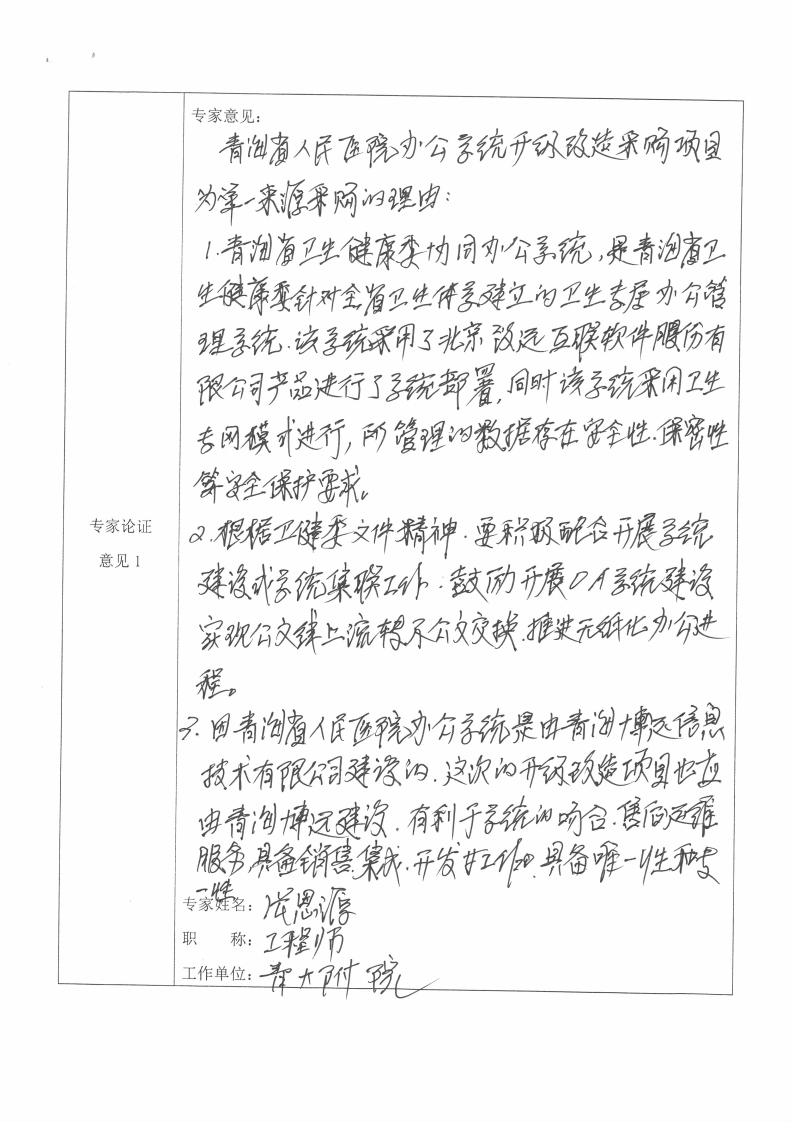 专家论证
意见 1
专家意见：
青海省人民医院办公系统升级改造采购项目
为单一来源采购的理由：
1.青海省卫生健康委协同办公系统，是青海省卫
生健康委针对全省卫生体系建立的卫生专属办公管
理系统.该系统采用了北京致远互联软件股份有
限公司产品进行了系统部署，同时该系统采用卫生
专网模式进行，所管理的数据存在安全性.保密性
等安全保护要求。
2.根据卫健委文件精神.要积极配合开展系统
建设或系统集联工作.鼓励开展OA系统建设
实现公文线上流转不公文交换.推进无纸化办公进
程。
3.因青海省人民医院办公系统是由青海博远信息
技术有限公司建设的.这次的升级改造项目也应
由青海博远建设.有利于系统的吻合.售后运维
服务,具备销售.集成.开发等工作.具备唯一性和专
一性
专家姓名：恩源
职 称：工程师
工作单位：青大附院